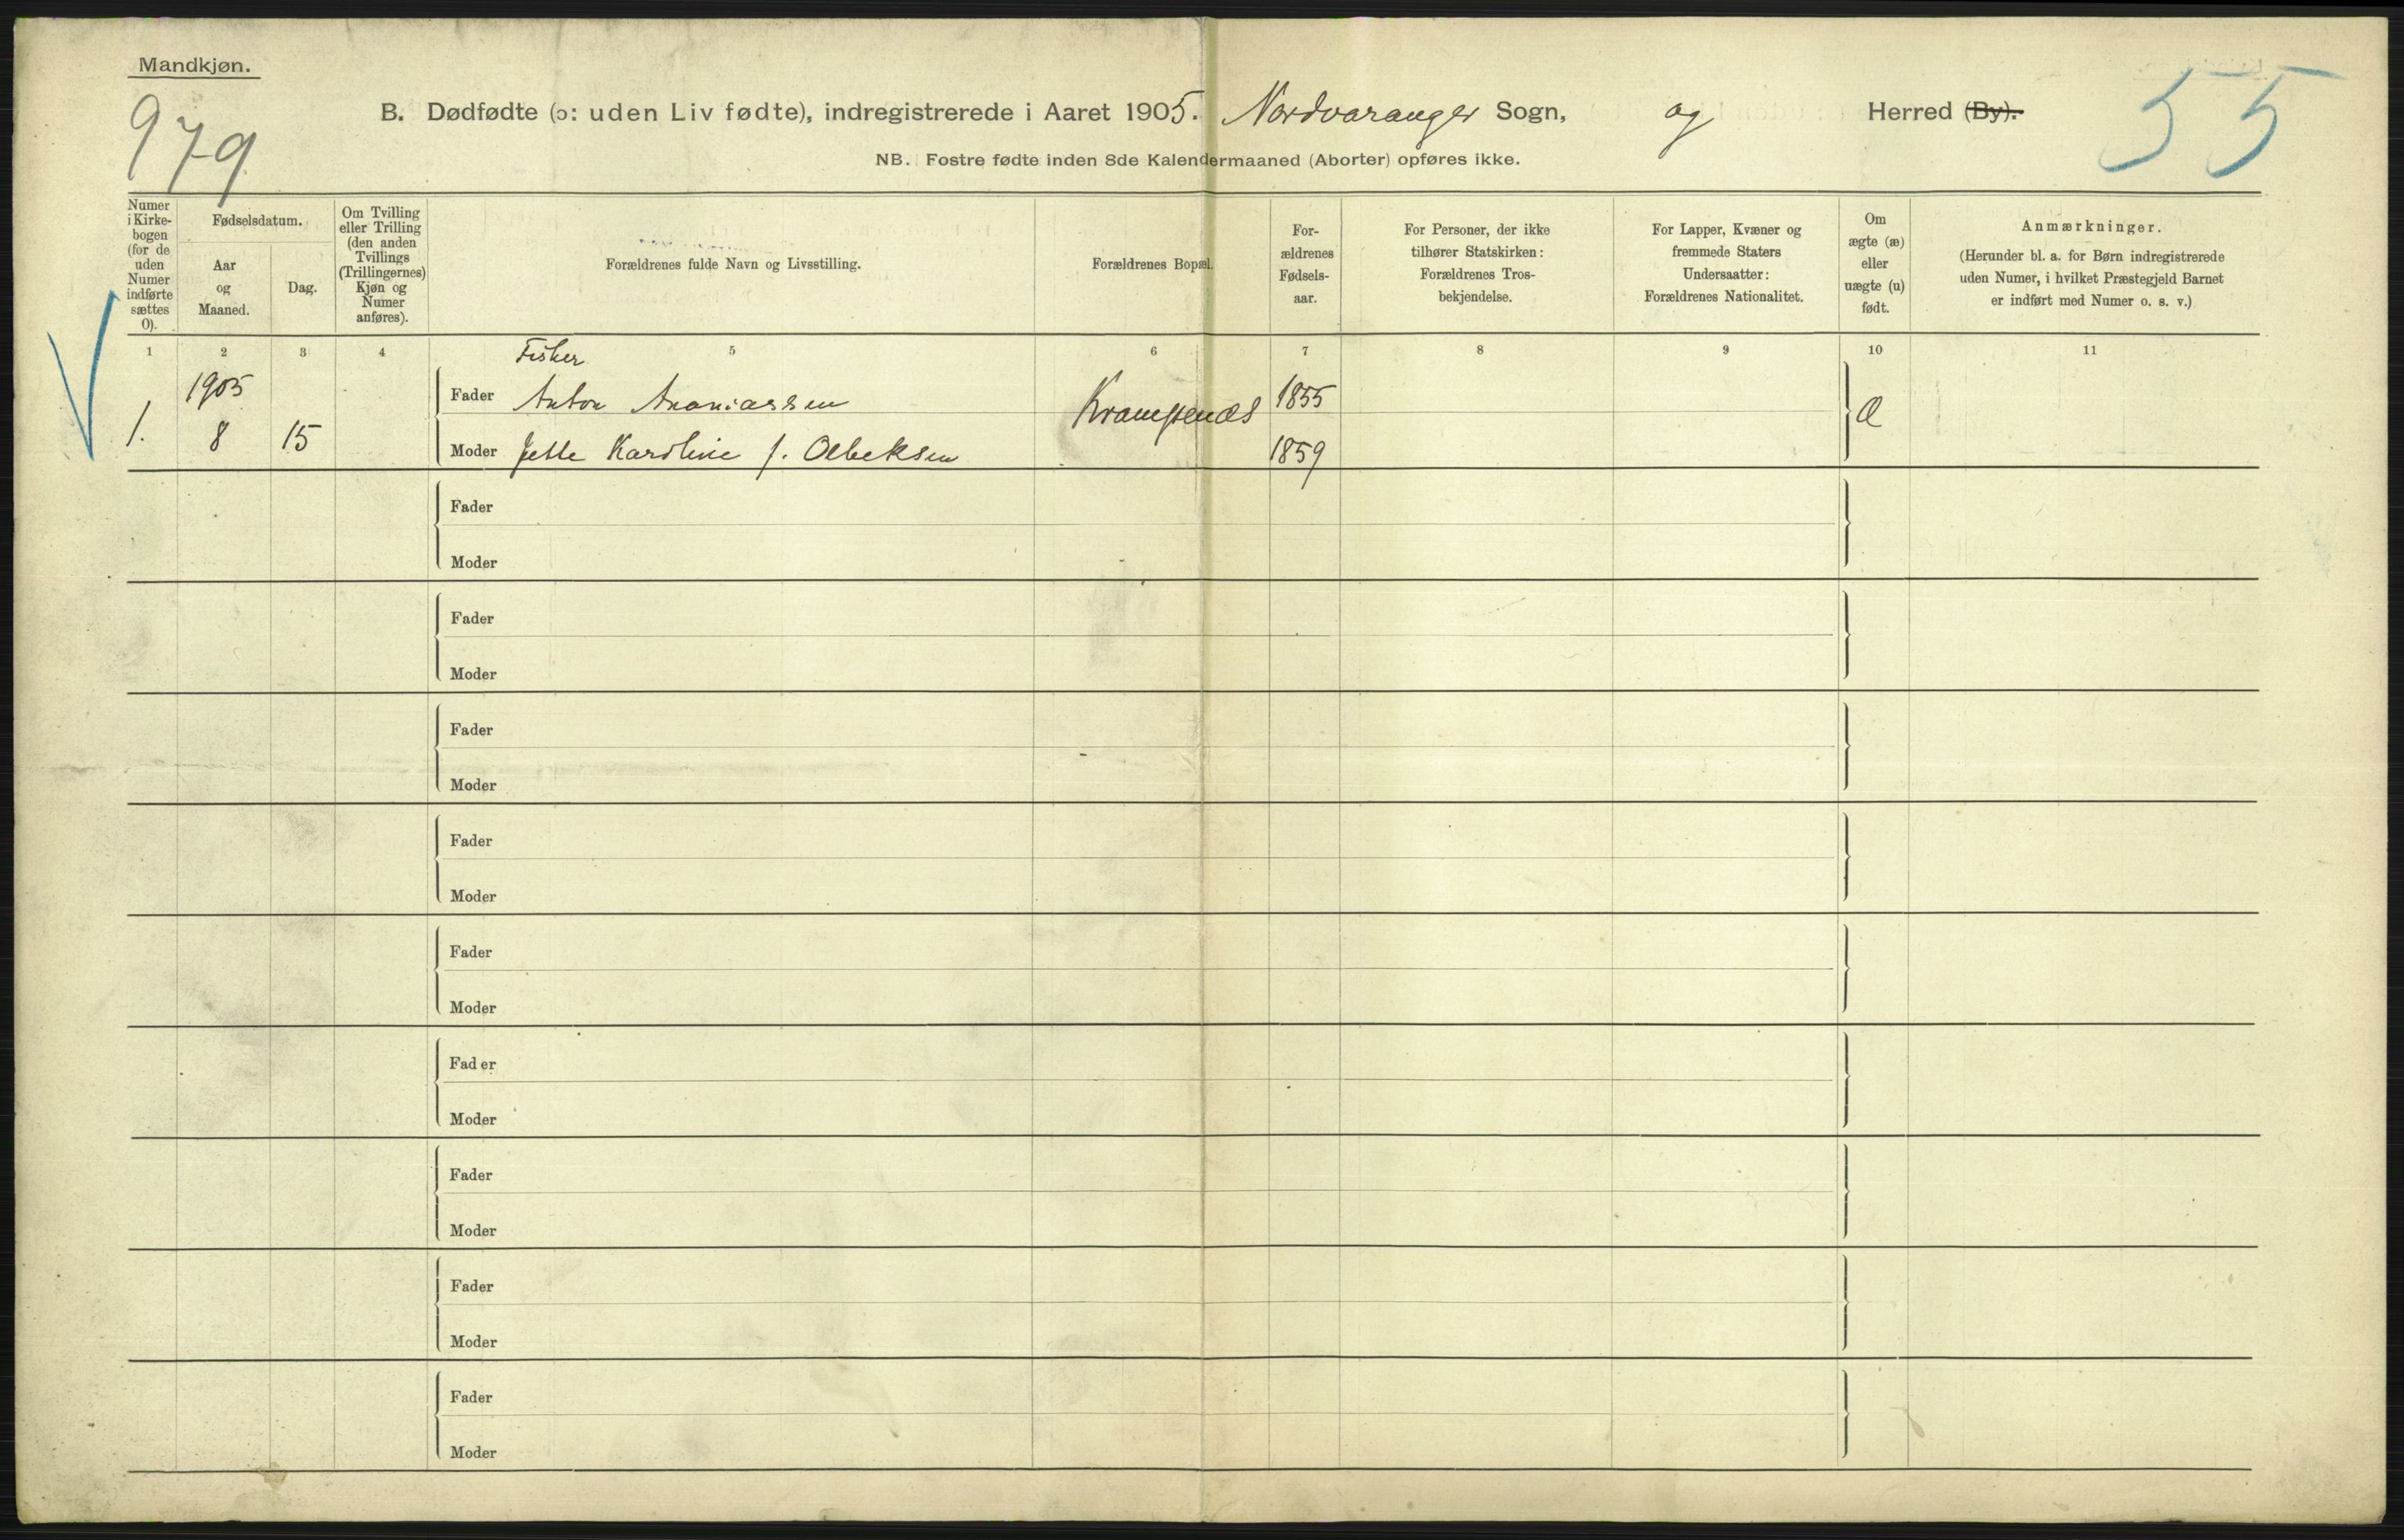 Mandkjøn.
979
B. Dødfødte (ɔ: uden Liv fødte), indregistrerede i Aaret 1905. Nordvaranger Sogn, og Herred (By).
55
NB. Fostre fødte inden 8de Kalendermaaned (Aborter) opføres ikke.
Numer
i Kirke-
bogen
(for de
uden
Numer
indførte
sættes
0).
Fødselsdatum.
Aar
og
Maaned.
Dag.
Om Tvilling
eller Trilling
(den anden
Tvillings
(Trillingernes)
Kjøn og
Numer
anføres).
Forældrenes fulde Navn og Livsstilling.
Forældrenes Bopæl.
For-
ældrenes
Fødsels-
aar.
For Personer, der ikke
tilhører Statskirken:
Forældrenes Tros-
bekjendelse.
For Lapper, Kvæner og
fremmede Staters
Undersaatter:
Forældrenes Nationalitet.
Om
ægte (æ)
eller
uægte (u)
født.
Anmærkninger.
(Herunder bl. a. for Børn indregistrerede
uden Numer, i hvilket Præstegjeld Barnet
er indført med Numer o. s. v.)
1 2 3 4 5 6 7 8 9 10 11
Fisker
1905 Fader Anton Ananiassen 1855
1. 8 15 Moder Jette Karoline f. 1859 æ
Fader
Moder
Fader
Moder
Fader
Moder
Fader
Moder
Fader
Moder
Fader
Moder
Fader
Moder
Fader
Moder
Fader
Moder